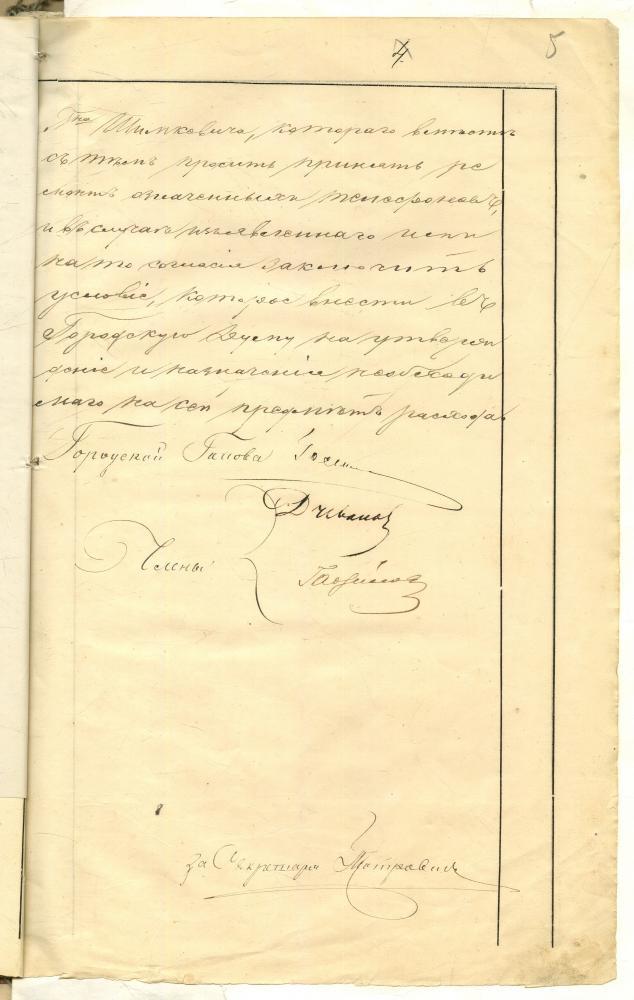 4
5
Г<sup>на</sup> Шимковича, котораго вместѣ
съ тѣмъ просить принять ре
монтъ означенныхъ телефоновъ,
и въ случаѣ изъявленнаго имъ
на то согласія заключить
условіе, которое внести въ
Городскую Думу на утверж
деніе и назначеніе необходи
маго на сей предметъ расхода.
Городской Голова
Члены
За Секретаря